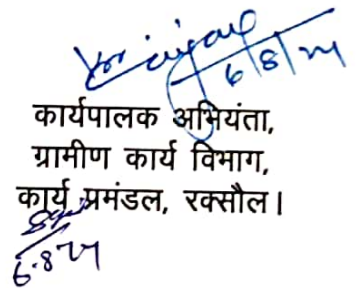 6/8/24
कार्यपालक अभियंता,
ग्रामीण कार्य विभाग,
कार्य प्रमंडल, रक्सौल।
6.8.24